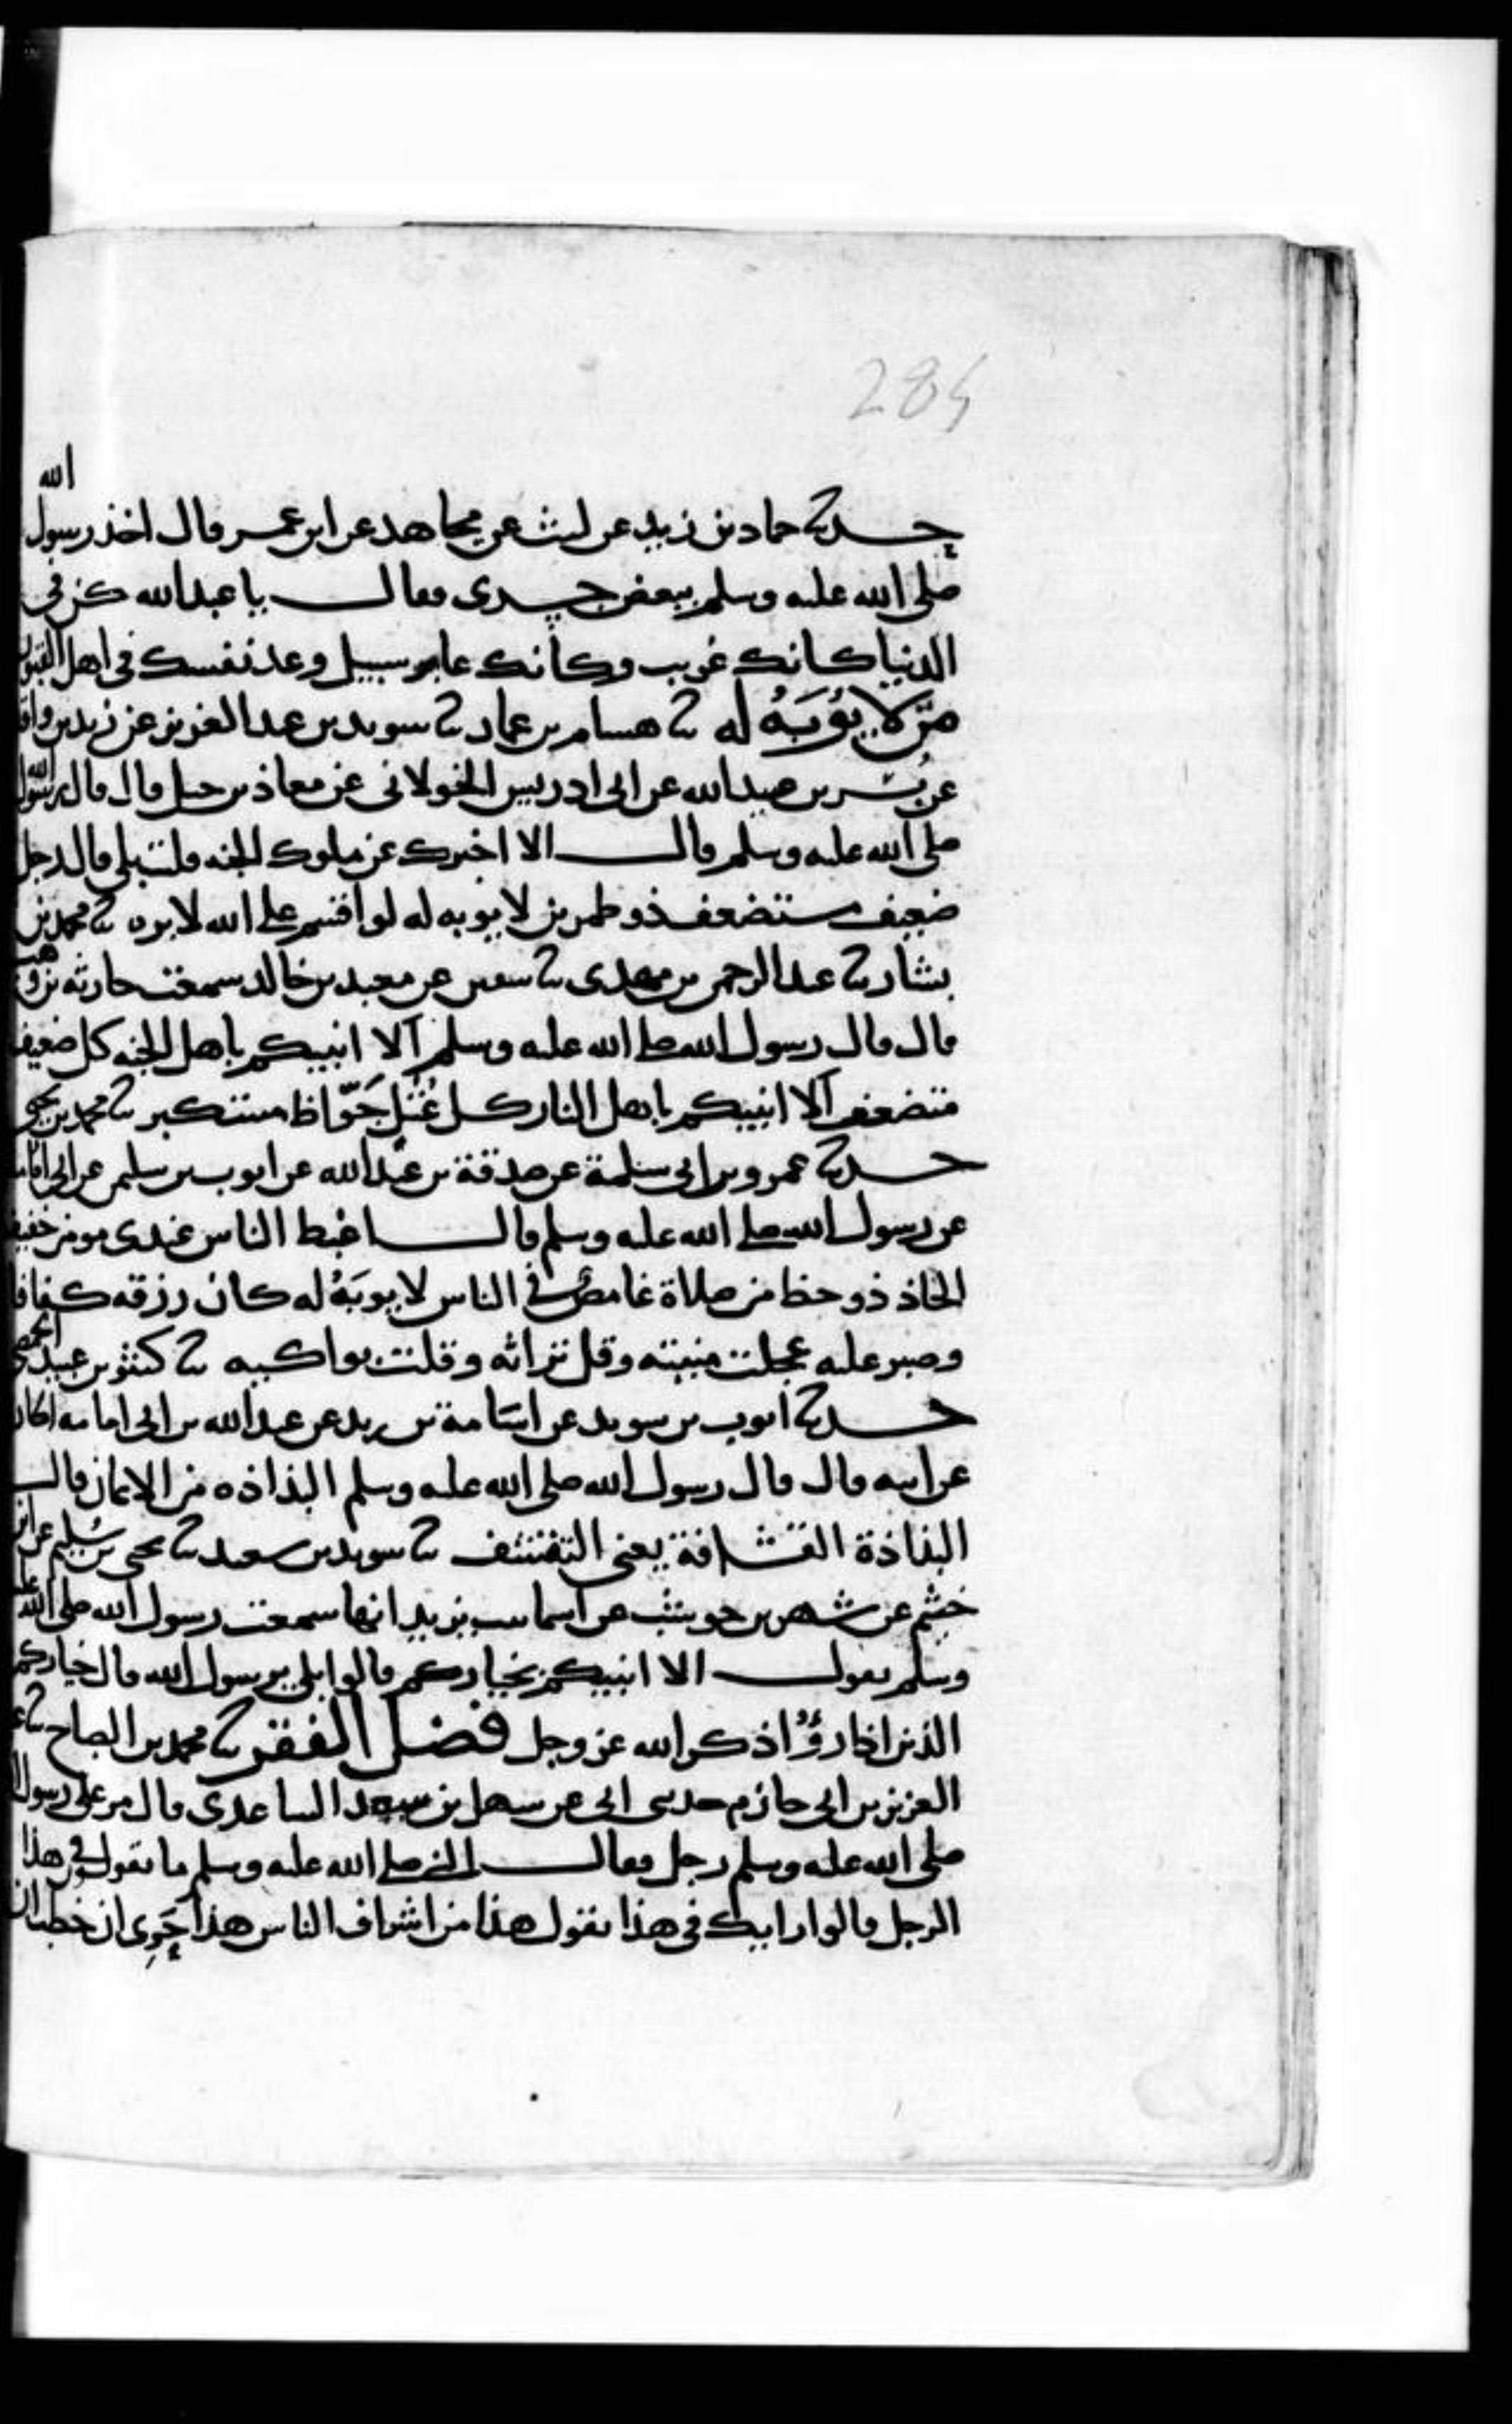 284
حدثنا حماد بن زيد عن ليث عن مجاهد عن ابن عمر قال اخذ رسول الله
صلى الله عليه وسلم ببعض جسدى فقال يا عبدالله كن في
الدنيا كانك غريب وكانك عابر سبيل وعد نفسك في اهل القبور
من لا يُؤبَهُ له ثنا هشام بن عمار ثنا سويد بن عبد العزيز عن زيد بن واقد
عن بُسر بن عبيد الله عن ابى ادريس الخولانى عن معاذ بن جبل قال قال رسول الله
صلى الله عليه وسلم قال الا اخبرك عن ملوك الجنه قلت بلى قال رجل
ضعيف مستضعف ذو طمرين لا يوبه له لو اقسم على الله لابره ثنا محمد بن
بشار ثنا عبد الرحمن بن مهدى ثنا سفين عن معبد بن خالد سمعت حارثه بن وهب
قال قال رسول الله صلى الله عليه وسلم الا انبيكم باهل الجنه كل ضعيف
متضعف الا انبيكم باهل النار كل عُتُل جَوّاظ مستكبر ثنا محمد بن يحيى
حدثنا عمرو بن ابى سلمة عن صدقة بن عبد الله عن ايوب بن سليمن عن ابى امامة
عن رسول الله صلى الله عليه وسلم قال اغبط الناس عندى مومن خفيف
الحاذ ذو حظ من صلاة غامض في الناس لا يوبَهُ له كان رزقه كفافا
وصبر عليه عجلت منيته وقل تراثه وقلت بواكيه ثنا كثير بن عبيد الحمصى
حدثنا ايوب بن سويد عن اسامة بن زيد عن عبد الله بن ابى امامه الحارثى
عن ابيه قال قال رسول الله صلى الله عليه وسلم البذاذه من الايمان قال
البذاذة القشافة يعنى التقشف ثنا سويد بن سعيد ثنا يحيى بن سُليم عن ابن
خثيم عن شهر بن حوشب عن اسما بنت يزيد انها سمعت رسول الله صلى الله عليه
وسلم يقول الا انبيكم بخياركم قالوا بلى يرسول الله قال خياركم
الذين اذا رؤُا ذكر الله عز وجل فضل الفقر ثنا محمد بن الصباح ثنا عبد
العزيز بن ابى حازم حدثنى ابى عن سهل بن سعد الساعدى قال مر على رسول الله
صلى الله عليه وسلم رجل فقال النبى صلى الله عليه وسلم ما تقولون في هذا
الرجل قالوا رايك في هذا نقول هذا من اشراف الناس هذا حَرِى ان خطب ان